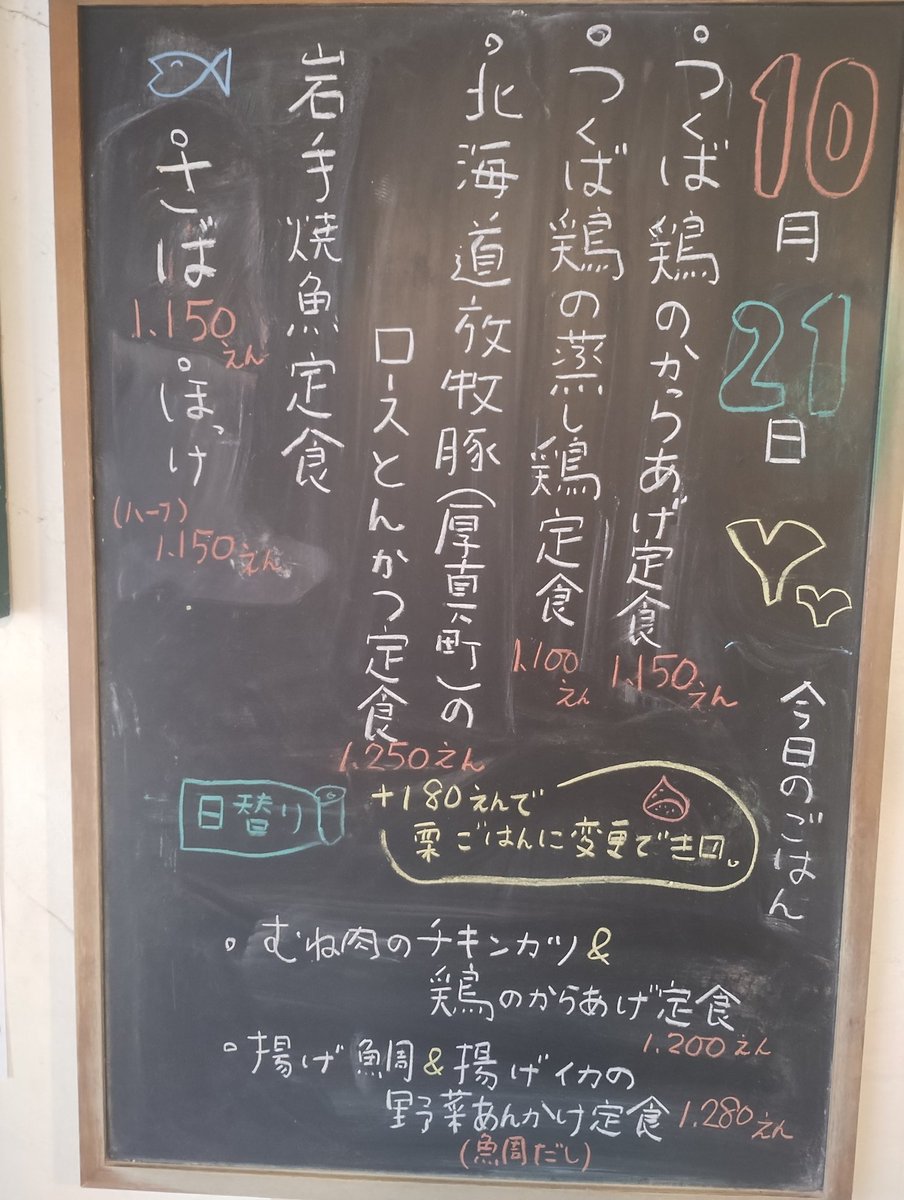 10月21日
今日のごはん
。つくば鶏のからあげ定食
1.150えん
。つくば鶏の蒸し鶏定食
1.100えん
。北海道放牧豚(厚真町)の
ロースとんかつ定食
1.250えん
岩手焼魚定食
。さば
1.150えん
。ほっけ
(ハーフ)
1.150えん
+180えんで
栗ごはんに変更でき〼。
日替り
。むね肉のチキンカツ&
鶏のからあげ定食
1.200えん
。揚げ鯛&揚げイカの
野菜あんかけ定食 1.280えん
(鯛だし)